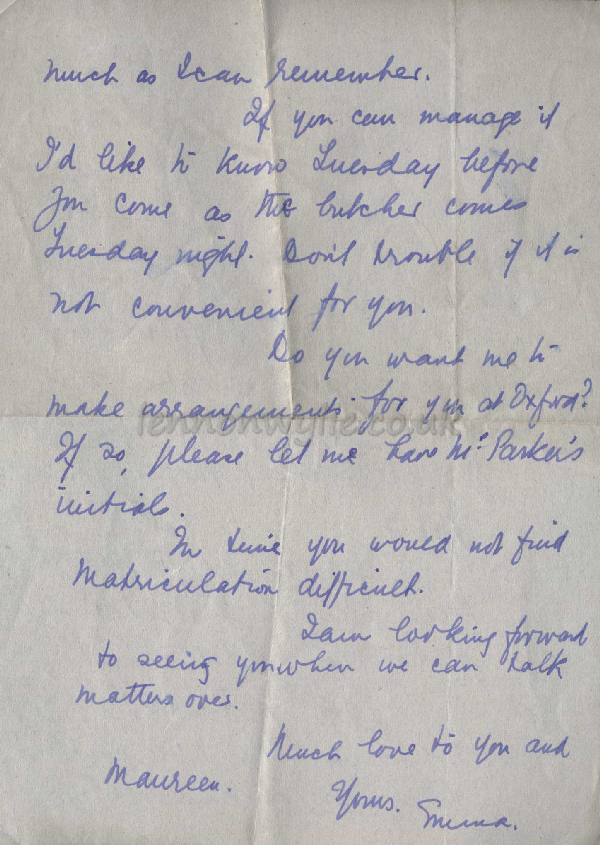 much as I can remember.
If you can manage it
I'd like to know Tuesday before
you come as the butcher comes
Tuesday night. Don't trouble if it is
not convenient for you.
Do you want me to
make arrangements for you at Oxford?
If so, please let me have Mr Parker's
initials.
In time you would not find
Matriculation difficult.
I am looking forward
to seeing you when we can talk
matters over.
Much love to you and
Maureen.
Yours.
Emma.
lennonwylie.co.uk